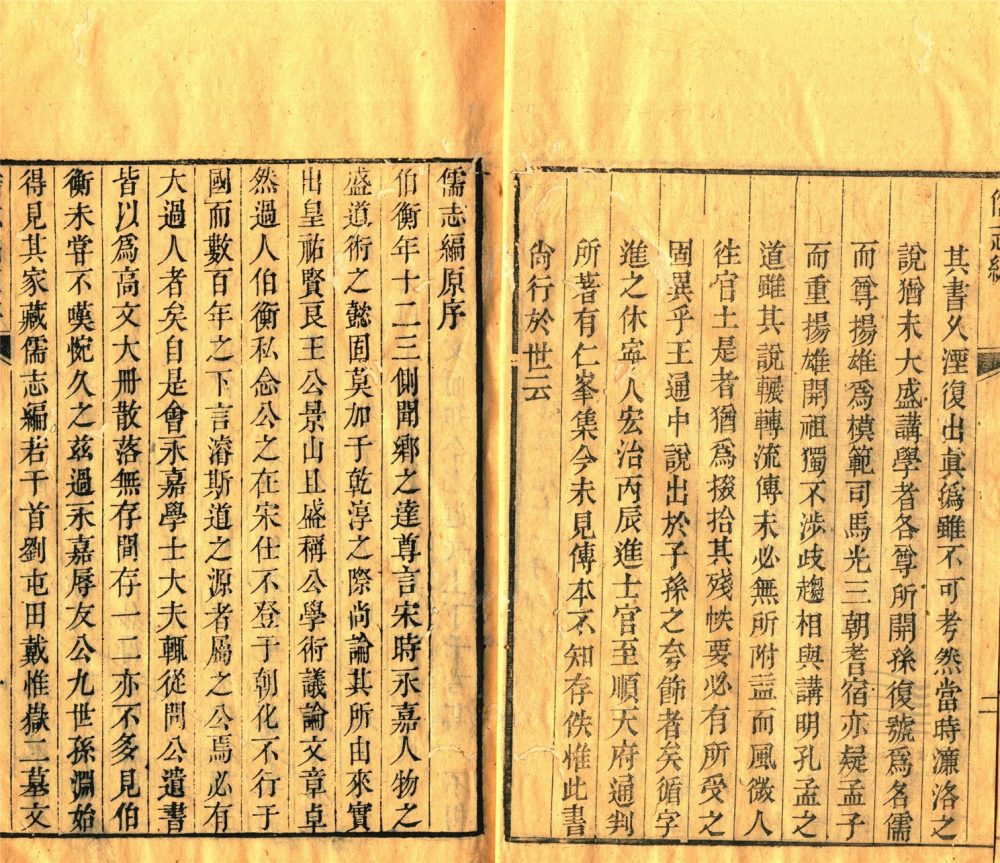 其書久湮復出真僞雖不可考然當時濂洛之
說猶未大盛講學者各尊所聞孫復號爲名儒
而尊揚雄爲模範司馬光三朝耆宿亦疑孟子
而重揚雄開祖獨不涉歧趨相與講明孔孟之
道雖其說輾轉流傳未必無所附益而風微人
往官土是者猶爲掇拾其殘帙要必有所受之
固異乎王通中說出於子孫之夸飾者矣循字
進之休寧人宏治丙辰進士官至順天府通判
所著有仁峯集今未見傳本不知存佚惟此書
尚行於世云
儒志編原序
伯衡年十二三側聞鄉之達尊言宋時永嘉人物之
盛道術之懿固莫加于乾淳之際尚論其所由來實
出皇祐賢良王公景山且盛稱公學術議論文章卓
然過人伯衡私念公之在宋仕不登于朝化不行于
國而數百年之下言濬斯道之源者屬之公焉必有
大過人者矣自是會永嘉學士大夫輒從問公遺書
皆以爲高文大册散落無存間存一二亦不多見伯
衡未嘗不嘆惋久之茲過永嘉辱友公九世孫淵始
得見其家藏儒志編若干首劉屯田戴惟嶽二墓文